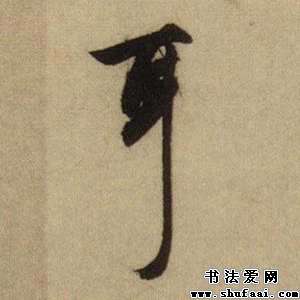 耳
书法爱网
www.shufaai.com